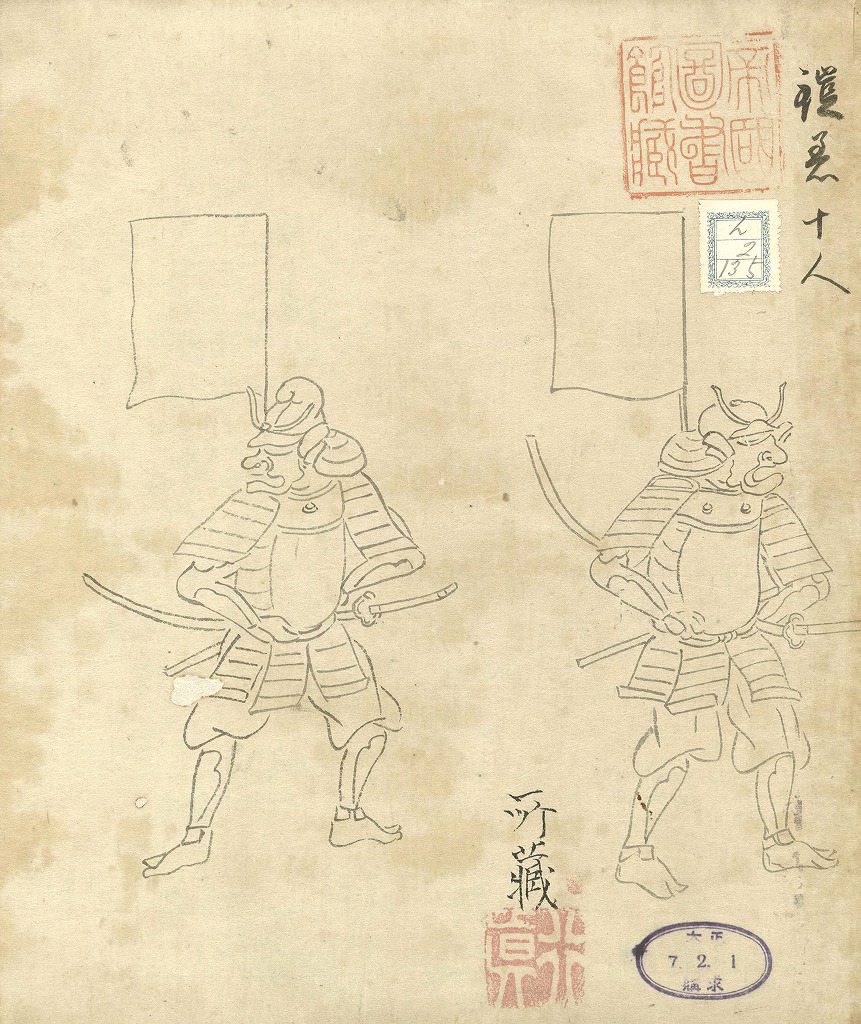 鎧着十人
帝國
圖書
館藏
ん
2
135
所藏
大正
7.2.1
購求